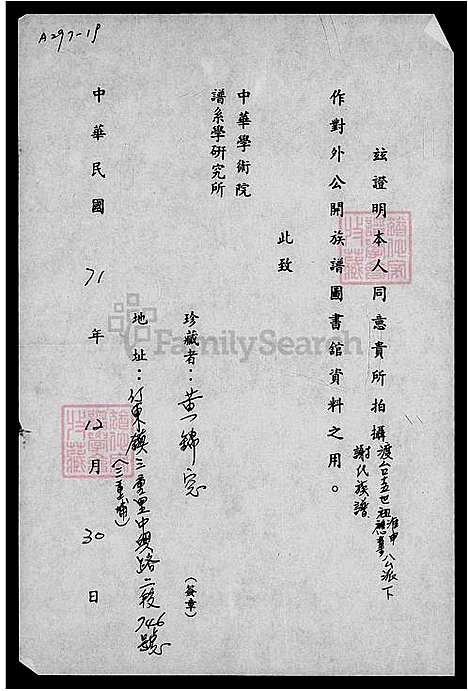 A297-19
茲證明本人同意貴所拍攝渡台十五世祖
謝氏族譜
八公派下
作對外公開族譜圖書館資料之用。
此致
中華學術院
譜系學研究所
珍藏者：黃錦
(簽章)
地址：竹東鎮三重里中興路二段746號
(三重埔)
中華民國71年12月30日
FamilySearch